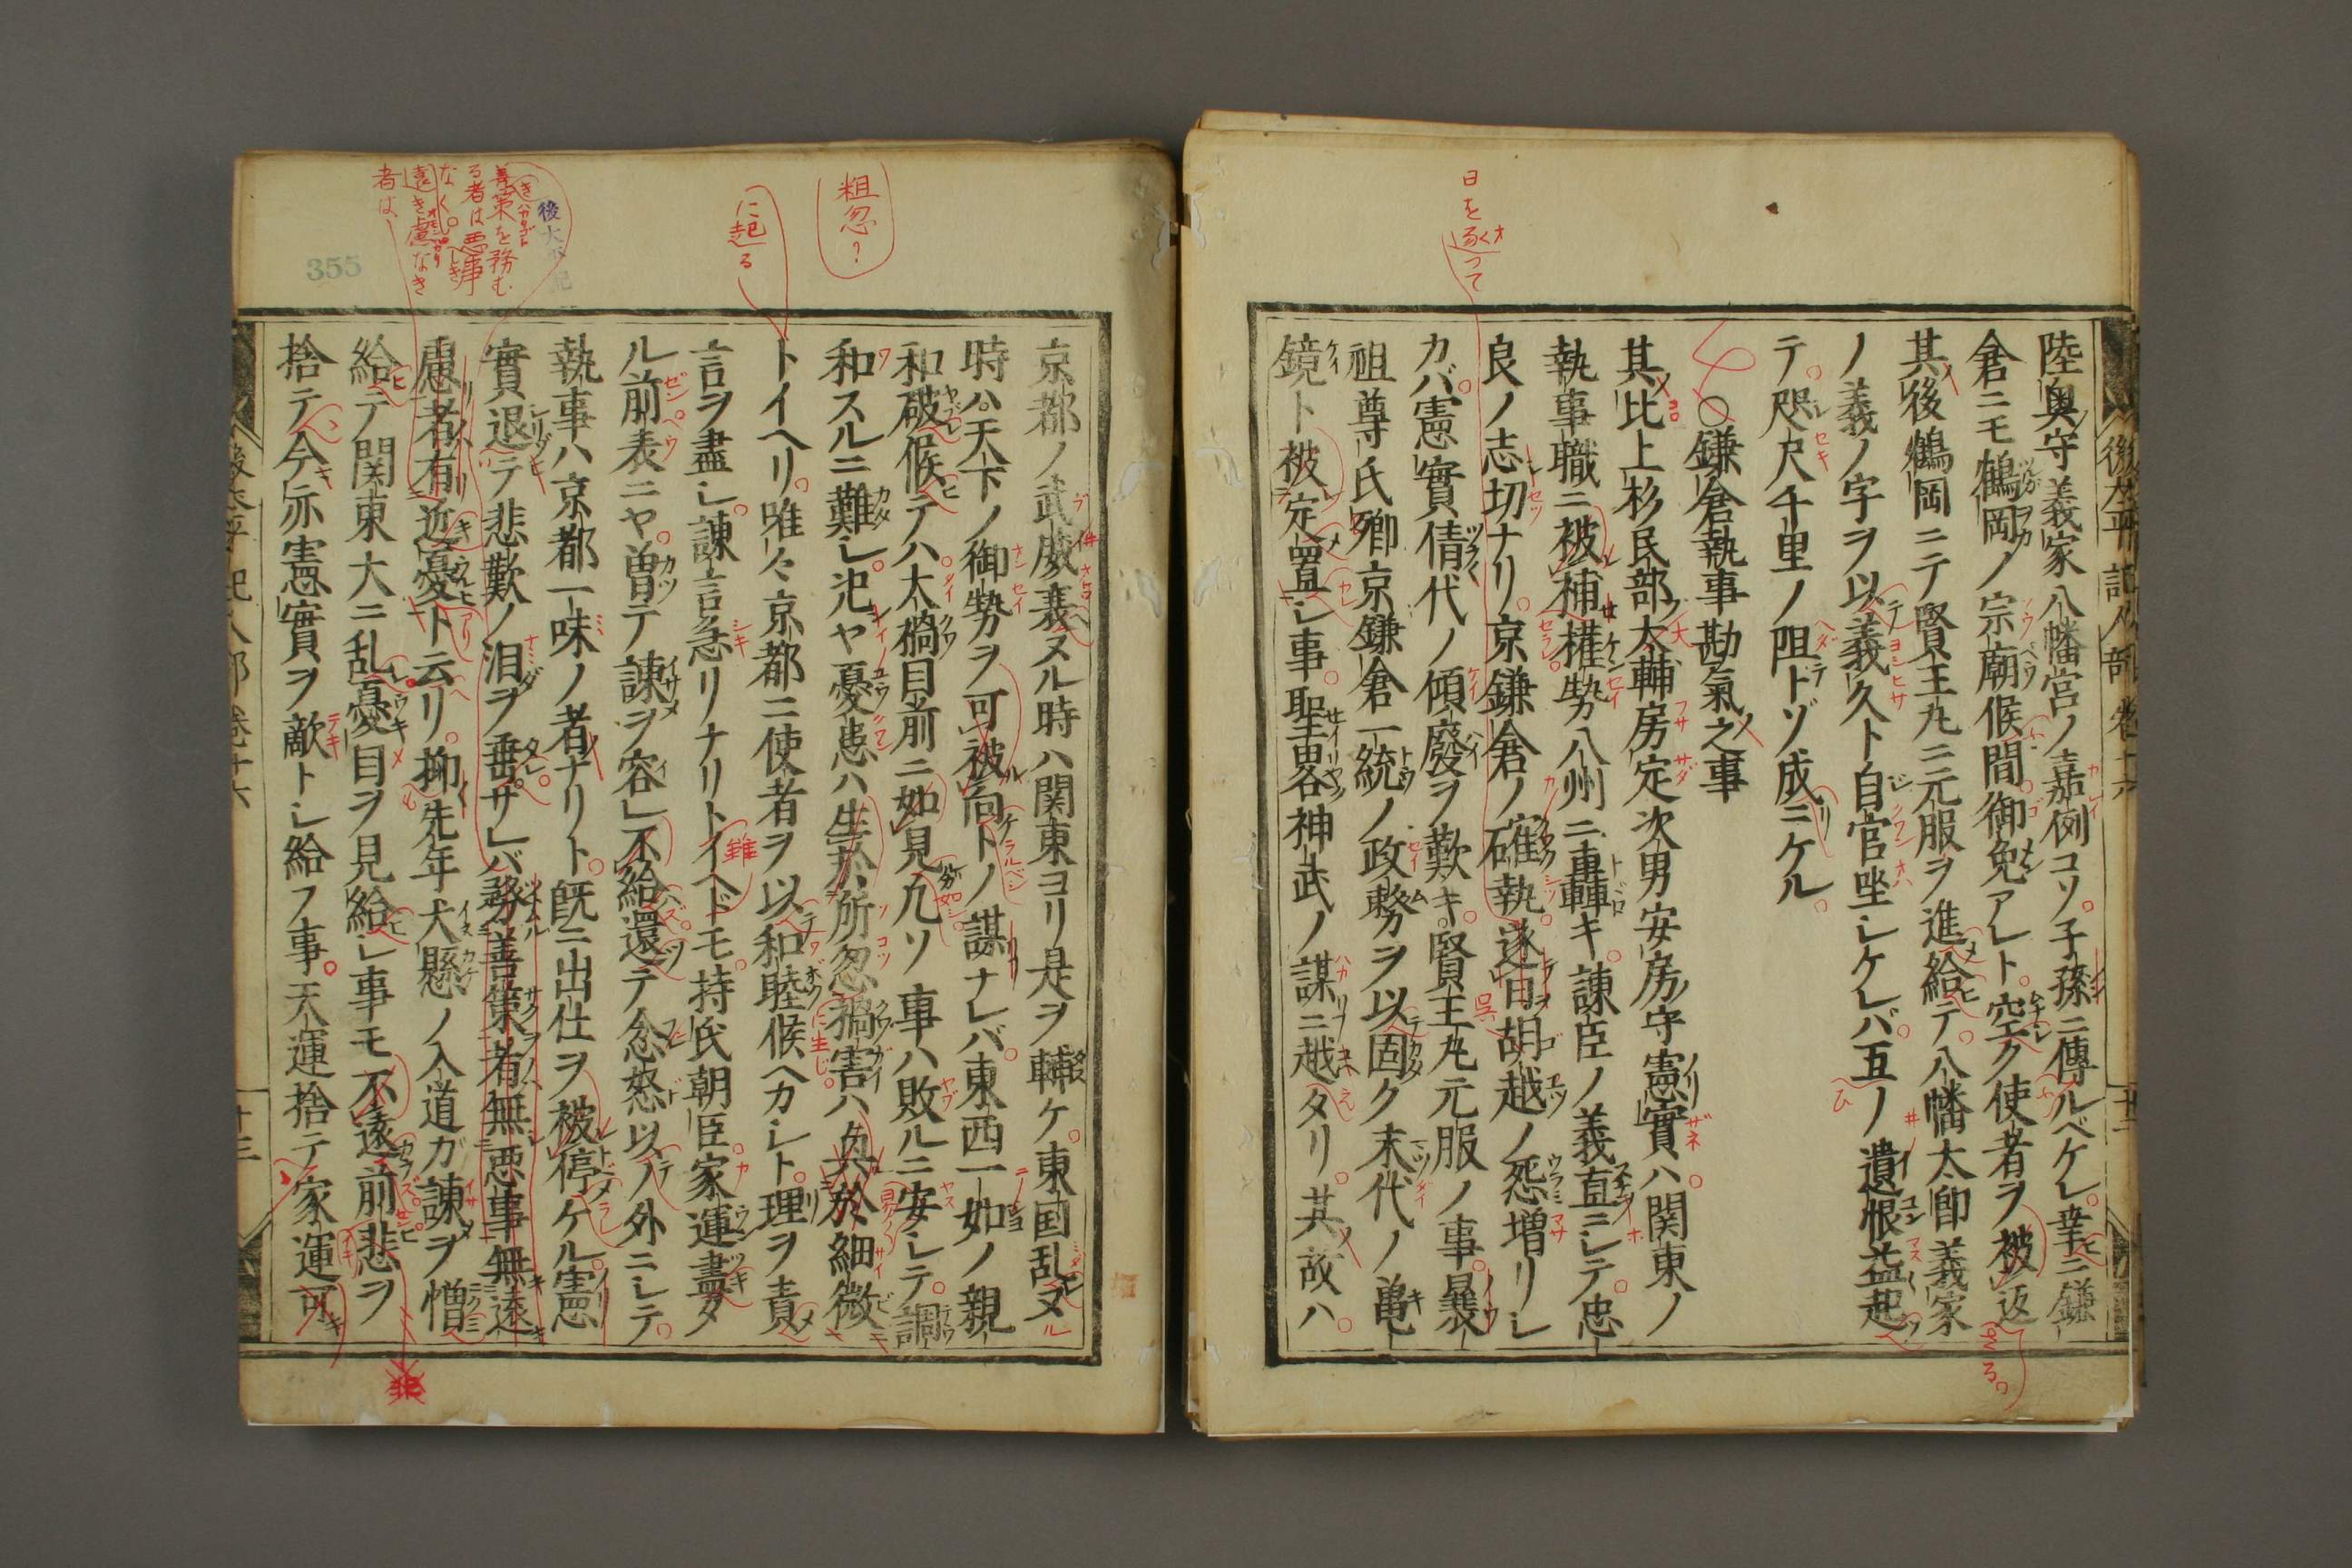 日を逐って
陸奥守義家八幡宮ノ嘉例コソ子孫ニ傳ルベケレ幸ニ鎌
倉ニモ鶴岡ノ宗廟候間御免アレト空ク使者ヲ被返
其後鶴岡ニテ賢王丸元服ヲ進給テ八幡太郎義家
ノ義ノ字ヲ以義久ト自官坐シケレバ互ノ遺恨益起
テ咫尺千里ノ阻トゾ成ニケル
○鎌倉執事勘氣之事
其比上杉民部大輔房定次男安房守憲實ハ関東ノ
執事職ニ被補権勢八州ニ轟キ諫臣ノ義直ニシテ忠
良ノ志切ナリ京鎌倉ノ確執逐日胡越ノ怨増リシ
カバ憲實倩代ノ傾廢ヲ歎キ賢王丸元服ノ事曩
祖尊氏卿京鎌倉一統ノ政務ヲ以固ク末代ノ亀
鏡ト被定置シ事聖畧神武ノ謀ニ越タリ其故ハ
後太平記 人部 巻十六
粗忽？
に起る
善策を務む
る者は悪事
なく。
遠き慮なき
者は
後太平記
355
京都ノ武威義ヌル時ハ関東ヨリ是ヲ輔ケ東国乱ヌル
時ハ天下ノ御勢ヲ可被向トノ謀ナレバ東西一如ノ親
和破候テハ太禍目前ニ如見凡ソ事ハ敗ルニ安シテ調
和スルニ難シ況ヤ憂患ハ生於所忽禍害ハ興於細微
トイヘリ唯々京都ニ使者ヲ以和睦候ヘカシト理ヲ責
言ヲ盡シ諫言急リナリトイヘドモ持氏朝臣家運盡タ
ル前表ニヤ曽テ諫ヲ容不給還テ忿怒以ノ外ニシテ
執事ハ京都一味ノ者ナリト既ニ出仕ヲ被停ケル憲
實退テ悲歎ノ泪ヲ垂サバ務善策者無悪事無遠
慮者有近憂ト云リ抑先年犬懸ノ入道ガ諫ヲ憎
給テ関東大ニ乱憂目ヲ見給シ事モ不遠前悲ヲ
捨テ今亦憲實ヲ敵トシ給フ事天運捨テ家運可
十三